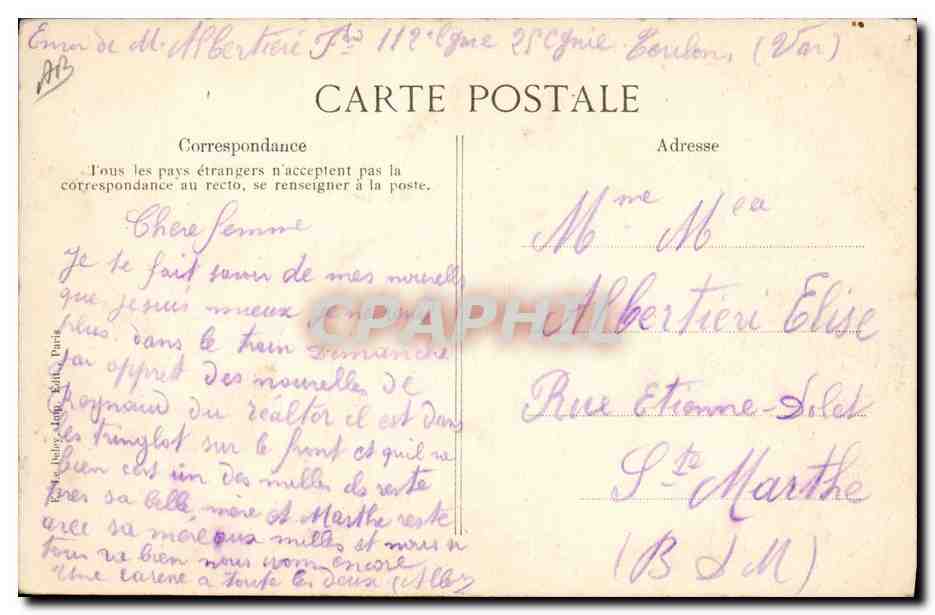 Envoi de M. Albertieri Fs 112e Ligne 25 Cgnie Toulon (Var)
AB
CARTE POSTALE
Correspondance
Tous les pays étrangers n'acceptent pas la
correspondance au recto, se renseigner à la poste.
Chere femme
Je te fait savoir de mes nouvelles
que je suis mieux je ne suis
plus dans le train Dimanche
j'ai appret des nouvelles de
Reynaud du réaltor il est dans
les tringlot sur le front et qu'il va
bien cest un des milles els reste
pres sa belle mère et Marthe reste
avec sa mère aux milles et nous si
tous va bien nous
Une a toute les deux Alber
E. Le Deley, Imp. Edit., Paris
CPAPHIL
Adresse
Mme Mea
Albertieri Elise
Rue Etienne-Dolet
Ste Marthe
(B D M)